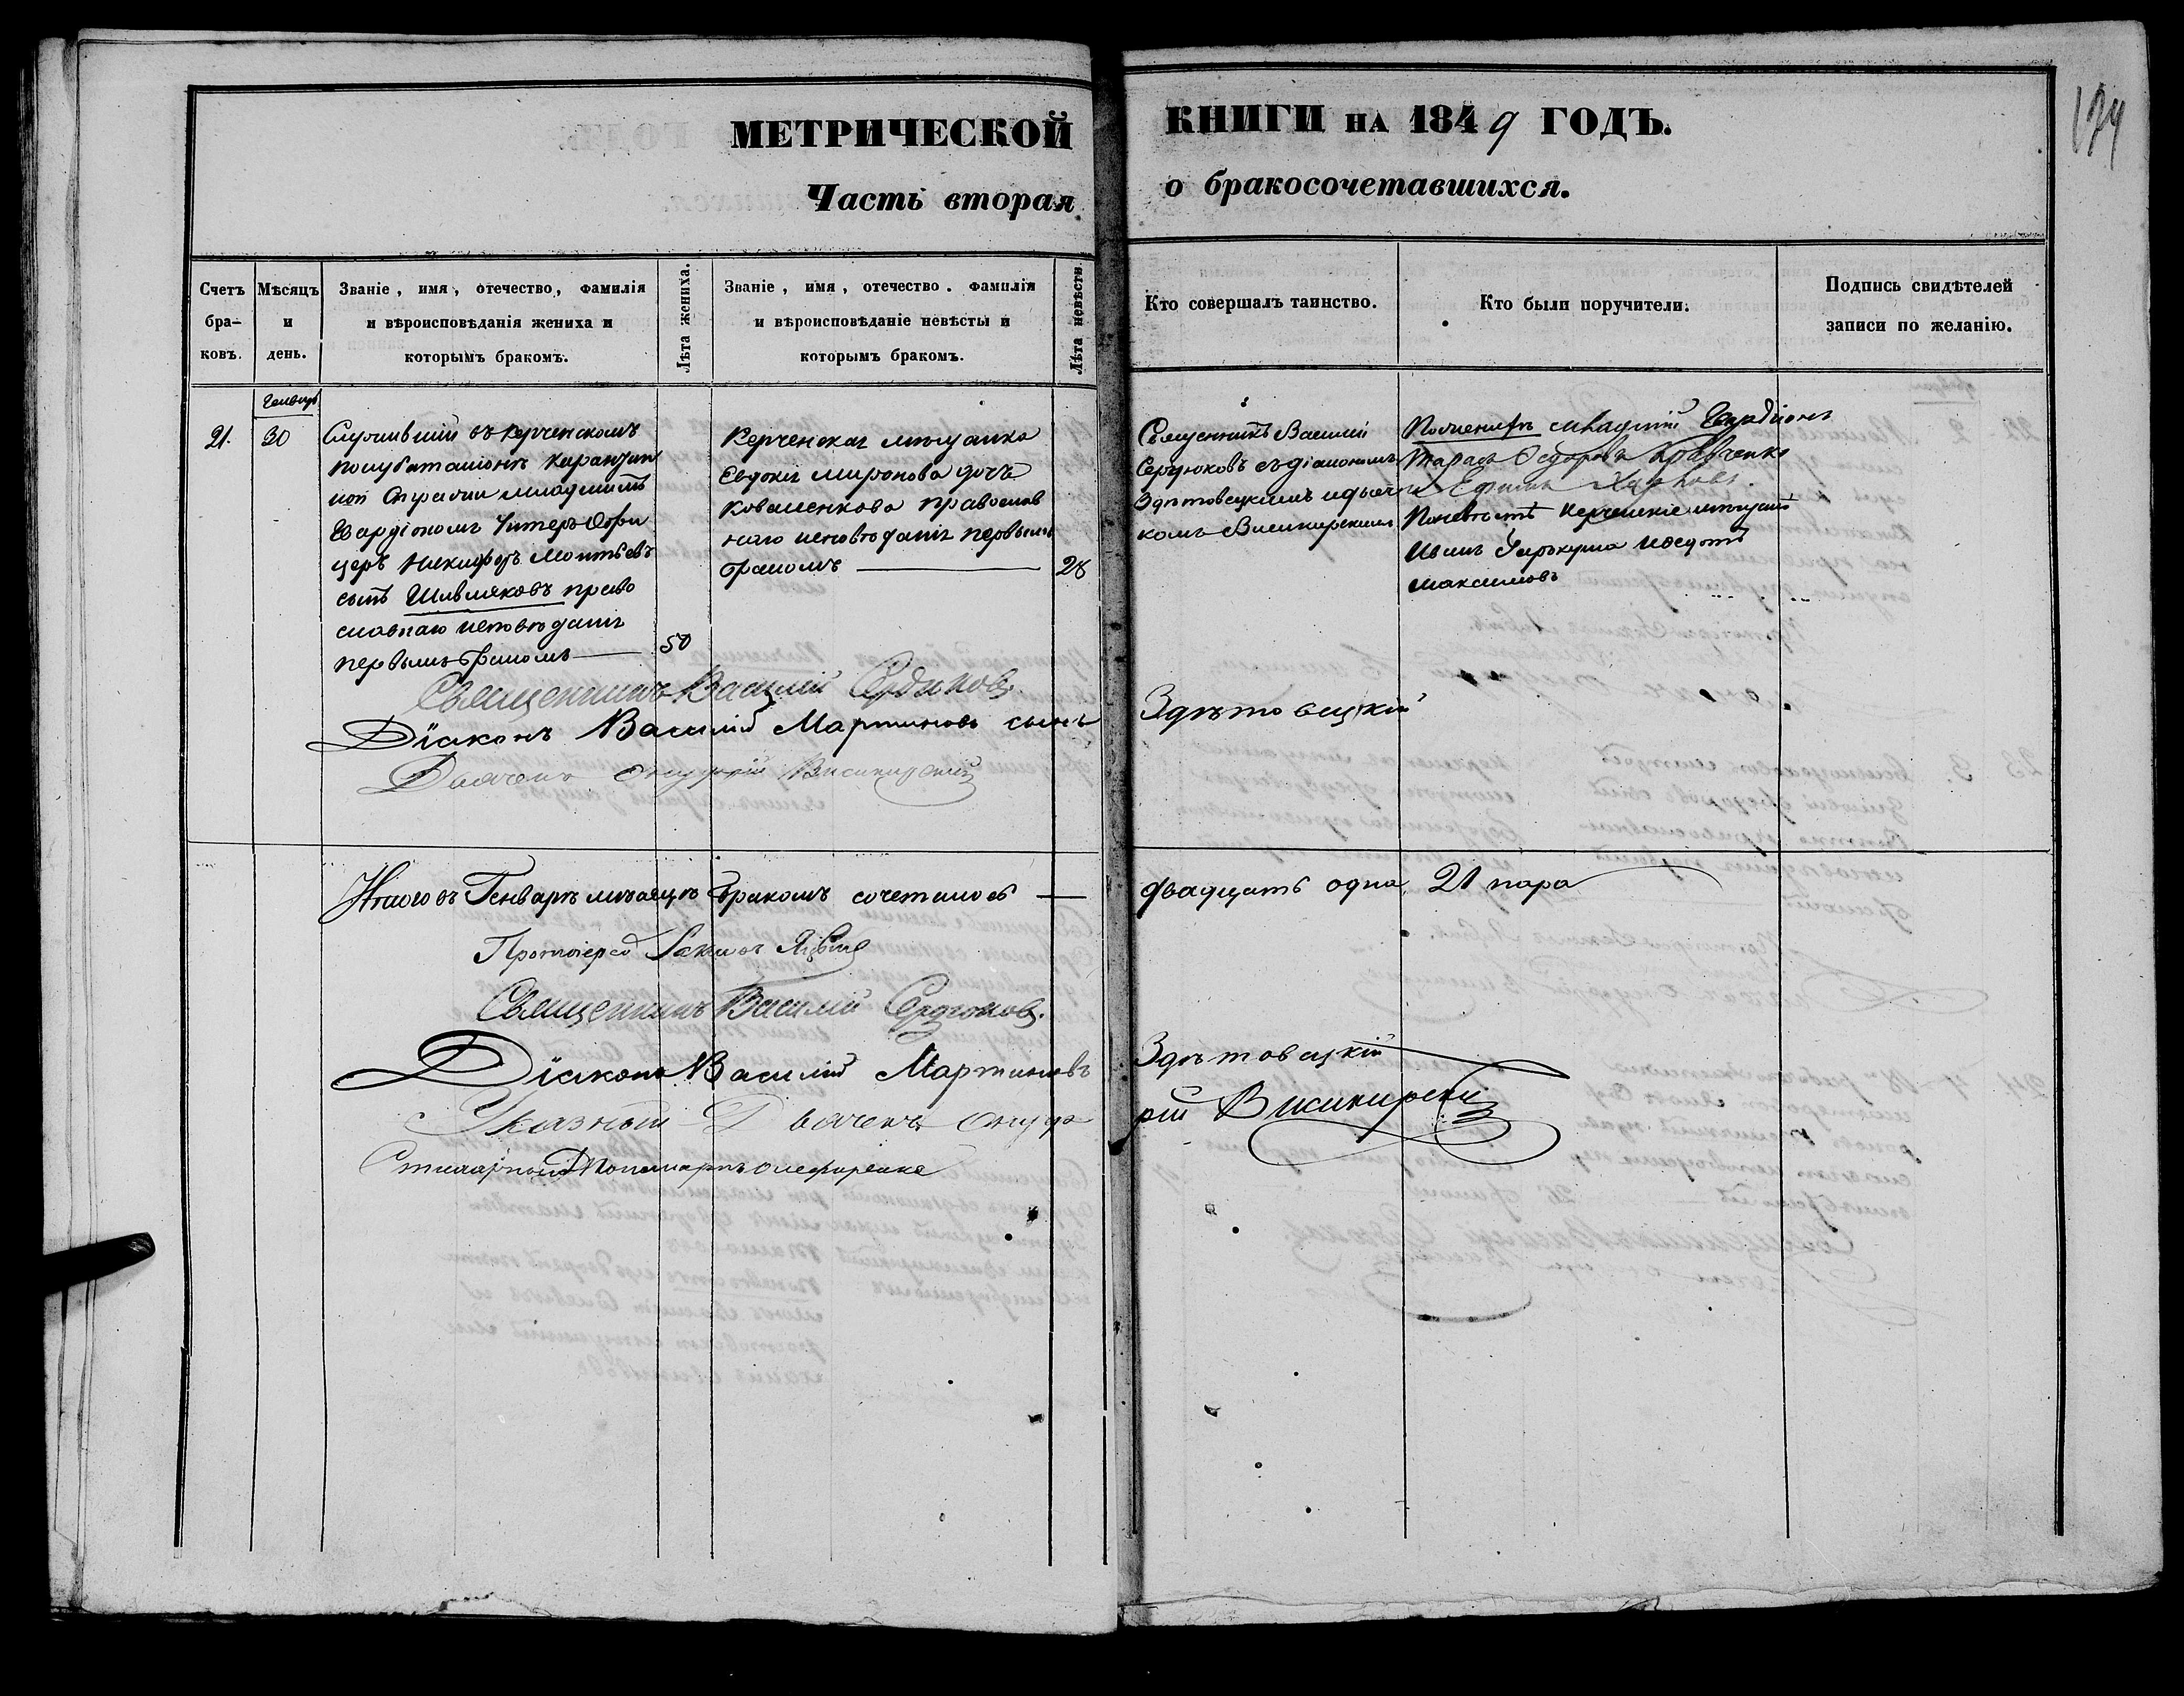 МЕТРИЧЕСКОЙ КНИГИ НА 1849 ГОДЪ.
Часть вторая о бракосочетавшихся.
174
Счетъ бра-ковъ.
Мѣсяцъ и день.
Званіе, имя, отечество, фамилія
и вѣроисповѣданія жениха и
которымъ бракомъ.
Лѣта жениха.
Званіе, имя, отечество. фамилія
и вѣроисповѣданіе невѣсты и
которымъ бракомъ.
Лѣта невѣсты
Кто совершалъ таинство.
Кто были поручители.
Подпись свидѣтелей
записи по желанію.
Генварь
21.
30
Служившій въ Керченскомъ
полубаталіонѣ Карантин
ной Стражи младшимъ
Гвардіономъ Унтеръ Офи
церъ Никифоръ
сынъ Шивляковъ право
славнаго исповѣданія
первымъ бракомъ
50
Керченская мѣщанка
Евдокія Миронова дочь
Коваленкова православ
наго исповѣданія первымъ
бракомъ
28
Священникъ Василій
Сердюковъ съ діакономъ
Здѣтовецкимъ и дьяч
комъ Висикирскимъ
По женихѣ младшій Гвардіонъ
Тарасъ Федоровъ Кравченко
и Ефимъ
По невѣстѣ керченскіе мѣщане
Иванъ и Федотъ
Максимовъ
Священникъ Василій Сердюковъ.
Діаконъ Василій Мартиновъ сынъ Здѣтовецкій
Дьячекъ Онуфрій Висикирскій
Итого въ Генварѣ мѣсяцѣ бракомъ сочеталось двадцать одна, 21 пара
Протоіерей
Священникъ Василій Сердюковъ.
Діаконъ Василій Мартиновъ Здѣтовецкій
Указный Дьячекъ Онуфрій Висикирскій
Стихарный Пономарь Олефиренко